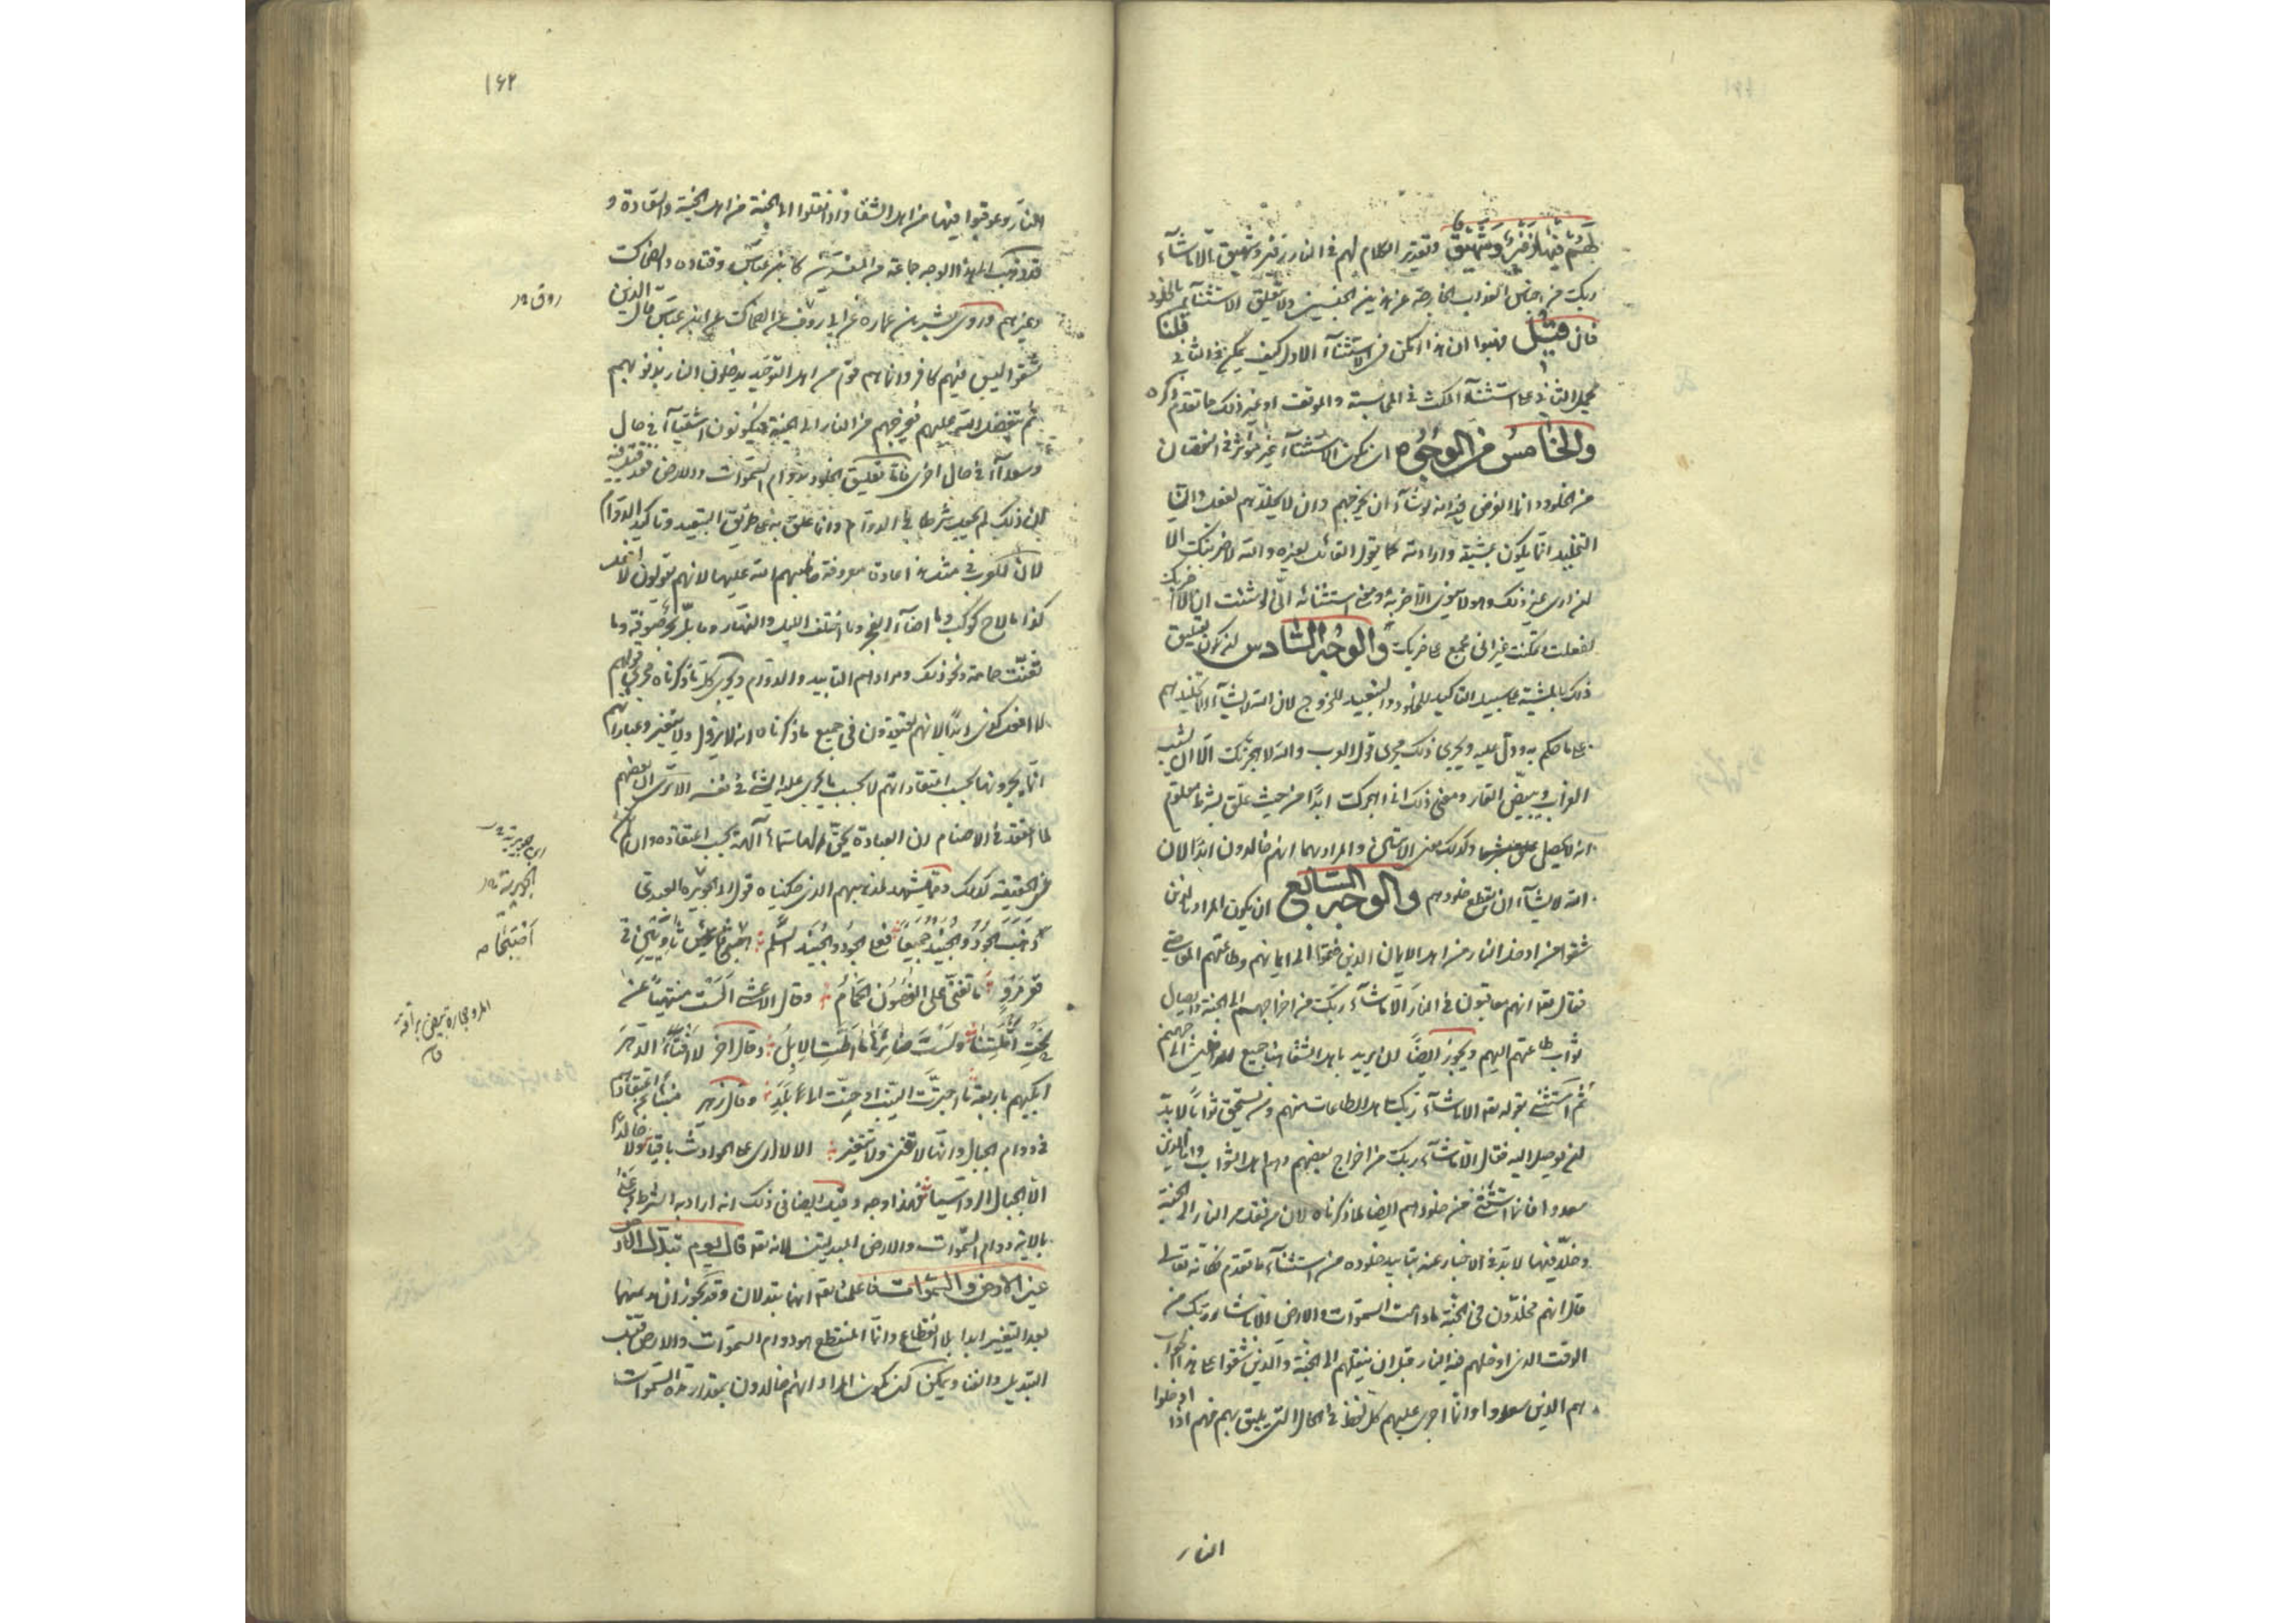 لهم فيها زفير وشهيق وتقدير الكلام لهم في النار زفير وشهيق الا ما شآء
ربك من اجناس العذاب الخارجة عن هذين الجنسين ولا يتعلق الاستثنآء بالخلود
فان قيل فهبوا ان هذا امكن في الاستثنآء الاول كيف يمكن في الثاني قلنا
يحمل الثاني على استثناء المكث في المحاسبة والموقف او غير ذلك مما تقدم ذكره
والخامس من الوجوه ان يكون الاستثنآء غير مؤثر في النقصان
من الخلود وانما الغرض فيه انه لو شآء ان يخرجهم وان لا يخلدهم لفعل وان
التخليد انما يكون بمشيته وارادته كما يقول القائل لغيره والله لاضربنك الا
ان ارى غير ذلك وهو لا ينوي الا ضربه ومعنى استثنائه اني لو شئت ان لا اضربك
لفعلت وتمكنت غير اني مجمع على ضربك والوجه السادس ان يكون تعليق
ذلك بالمشية على سبيل التاكيد للخلود والتبعيد للخروج لان الله لا يشآء الا تخليدهم
على ما حكم به ودل عليه ويجري ذلك مجرى قول العرب والله لاهجرنك الا ان يشيب
الغراب ويبيض القار ومعنى ذلك اني اهجرك ابدا من حيث علق بشرط معلوم
انه لا يحصل وكذلك معنى الآيتين والمراد بهما انهم خالدون ابدا لان
الله لا يشآء ان يقطع خلودهم والوجه السابع ان يكون المراد بالذين
شقوا من ادخل النار من اهل الايمان الذين ضموا الى ايمانهم وطاعتهم المعاصي
فقال تعه انهم معاقبون في النار الا ما شآء ربك من اخراجهم الى الجنة وايصال
ثواب طاعتهم اليهم ويجوز ايضا ان يريد باهل الشقا هنا جميع الداخلين الى جهنم
ثم استثنى بقوله تعه الا ما شآء ربك اهل الطاعات منهم ومن يستحق ثوابا لا بد
ان يوصل اليه فقال الا ما شآء ربك من اخراج بعضهم وهم اهل الثواب واما الذين
سعدوا فانما استثنى من خلودهم ايضا لما ذكرناه لان من نقل من النار الى الجنة
وخلد فيها لا بد في الاخبار عنه بتابيد خلوده من استثنآء ما تقدم فكانه تعالى
قال انهم مخلدون في الجنة ما دامت السموات والارض الا ما شاء ربك من
الوقت الذي ادخلهم فيه النار قبل ان ينقلهم الى الجنة والذين شقوا على هذا الجواب
هم الذين سعدوا وانما اجرى عليهم كل لفظ في الحال التي يليق بهم فهم اذا ادخلوا
النار
١٦٢
النار وعوقبوا فيها من اهل الشقا واذا نقلوا الى الجنة من اهل الجنة والسعادة و
قد ذهب الى هذا الوجه جماعة من المفسرين كابن عباس وقتاده والضحاك
وغيرهم وروى بشر بن عماره عن ابي روق عن الضحاك عن ابن عباس قال الذين
شقوا ليس فيهم كافر وانما هم قوم من اهل التوحيد يدخلون النار بذنوبهم
ثم يتفضل الله عليهم فيخرجهم من النار الى الجنة فيكونون اشقيآء في حال
وسعدآء في حال اخرى فاما تعليق الخلود بدوام السموات والارض فقد قيل فيه
ان ذلك لم يجعل شرطا في الدوام وانما علق به على طريق التبعيد وتاكيد الدوام
لان للعرب في مثل هذا عادة معروفة خاطبهم الله عليها لانهم يقولون لا افعل
كذا ما لاح كوكب وما اضآء الفجر وما اختلف الليل والنهار وما بل بحر صوفة وما
تغنت حمامة ونحو ذلك ومرادهم التابيد والدوام ويجري كل ما ذكرناه مجرى قولهم
لا افعل كذا ابدا لانهم يعتقدون في جميع ما ذكرناه انه لا يزول ولا يتغير وعباراتهم
انما يخرجونها بحسب اعتقاداتهم لا بحسب ما يجري عليه الشيء في نفسه الا ترى ان بعضهم
لما اعتقد في الاصنام ان العبادة يحق لها سماها آلهة بحسب اعتقاده وان لم
في الحقيقة كذلك ومما يشهد لمذهبهم الذي حكيناه قول ابي الجويرة العبدي
ذهب الجود والجنيد جميعا فعلى الجود والجنيد السلم اصبحا ثاويين في
ما تغنى على الغصون الحمام وقال الاعشى الست منتهيا عن
نحت اثلتنا ولست ضائرها ما اطت الابل وقال اخر لا افتأ الدهر
ابكيهم باربعة ما اجترت النيب او حنت الى بلد وقال زهير منبئا عن اعتقاده
في دوام الجبال وانها لا تفنى ولا تتغير الا لا ارى على الحوادث باقيا ولا خالدا
الا الجبال الرواسيا فهذا وجه وقيل ايضا في ذلك انه اراد به الشرط وعنى
بالاية دوام السموات والارض المبدلتين لانه تعه قال يوم تبدل الارض
غير الارض والسموات فاعلمنا تعه انهما تبدلان وقد يجوز ان يديمهما
بعد التغيير ابدا بلا انقطاع وانما المنقطع هو دوام السموات والارض قبل
التبديل والفنا ويمكن ان يكون المراد انهم خالدون بمقدار مدة السموات
روق
الجويرية